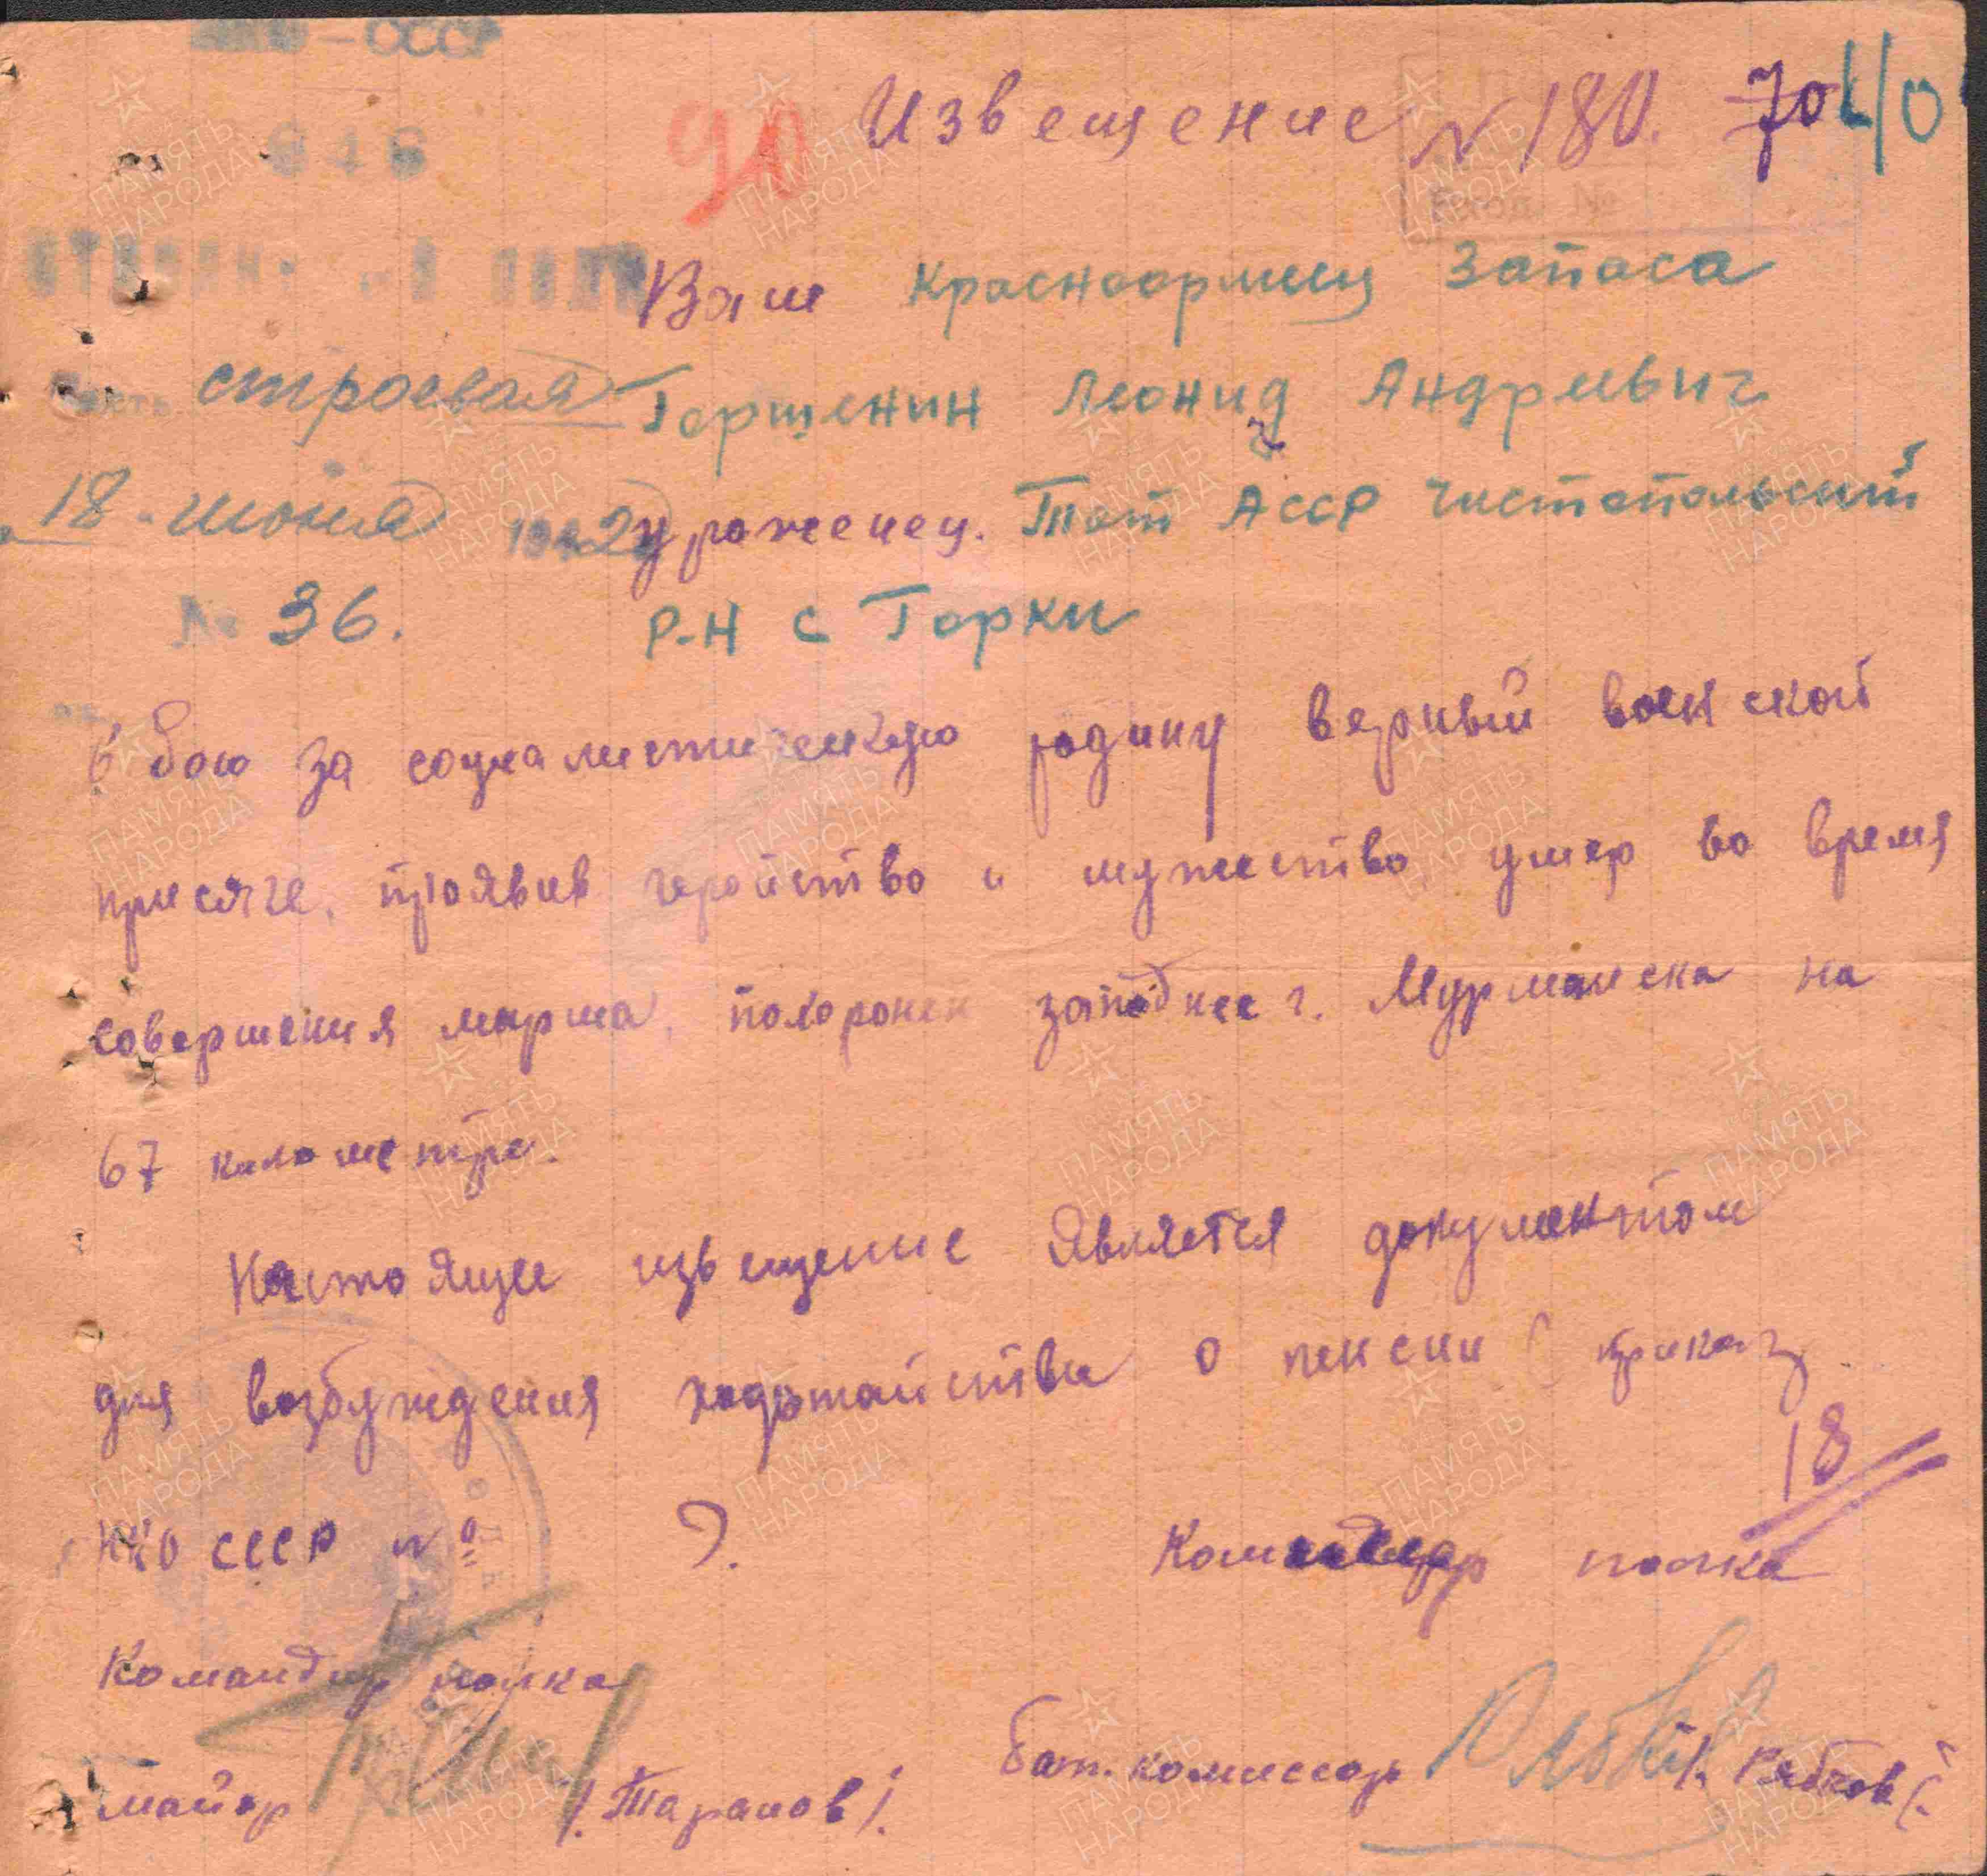 НКО-СССР
90 Извещение № 180.
Ваш красноормеец запаса
Часть строевая Горшенин Леонид Андреевич
18 июня 1942 уроженец. Тат АССР Чистопольский
№ 36. Р-Н с Горки
в бою за социалистическую родину верный воинской
присяге, проявив геройство и мужество умер во время
совершения марша, похоронен западнее г. Мурманска на
67 километре.
Настоящее извещение является документом
для возбуждения ходатайства о пенсии (приказ
НКО СССР №
18
Командир полка
Командир полка
майор /.Таранов/.
бат. комиссар /. Рябков /.
ПАМЯТЬ НАРОДА